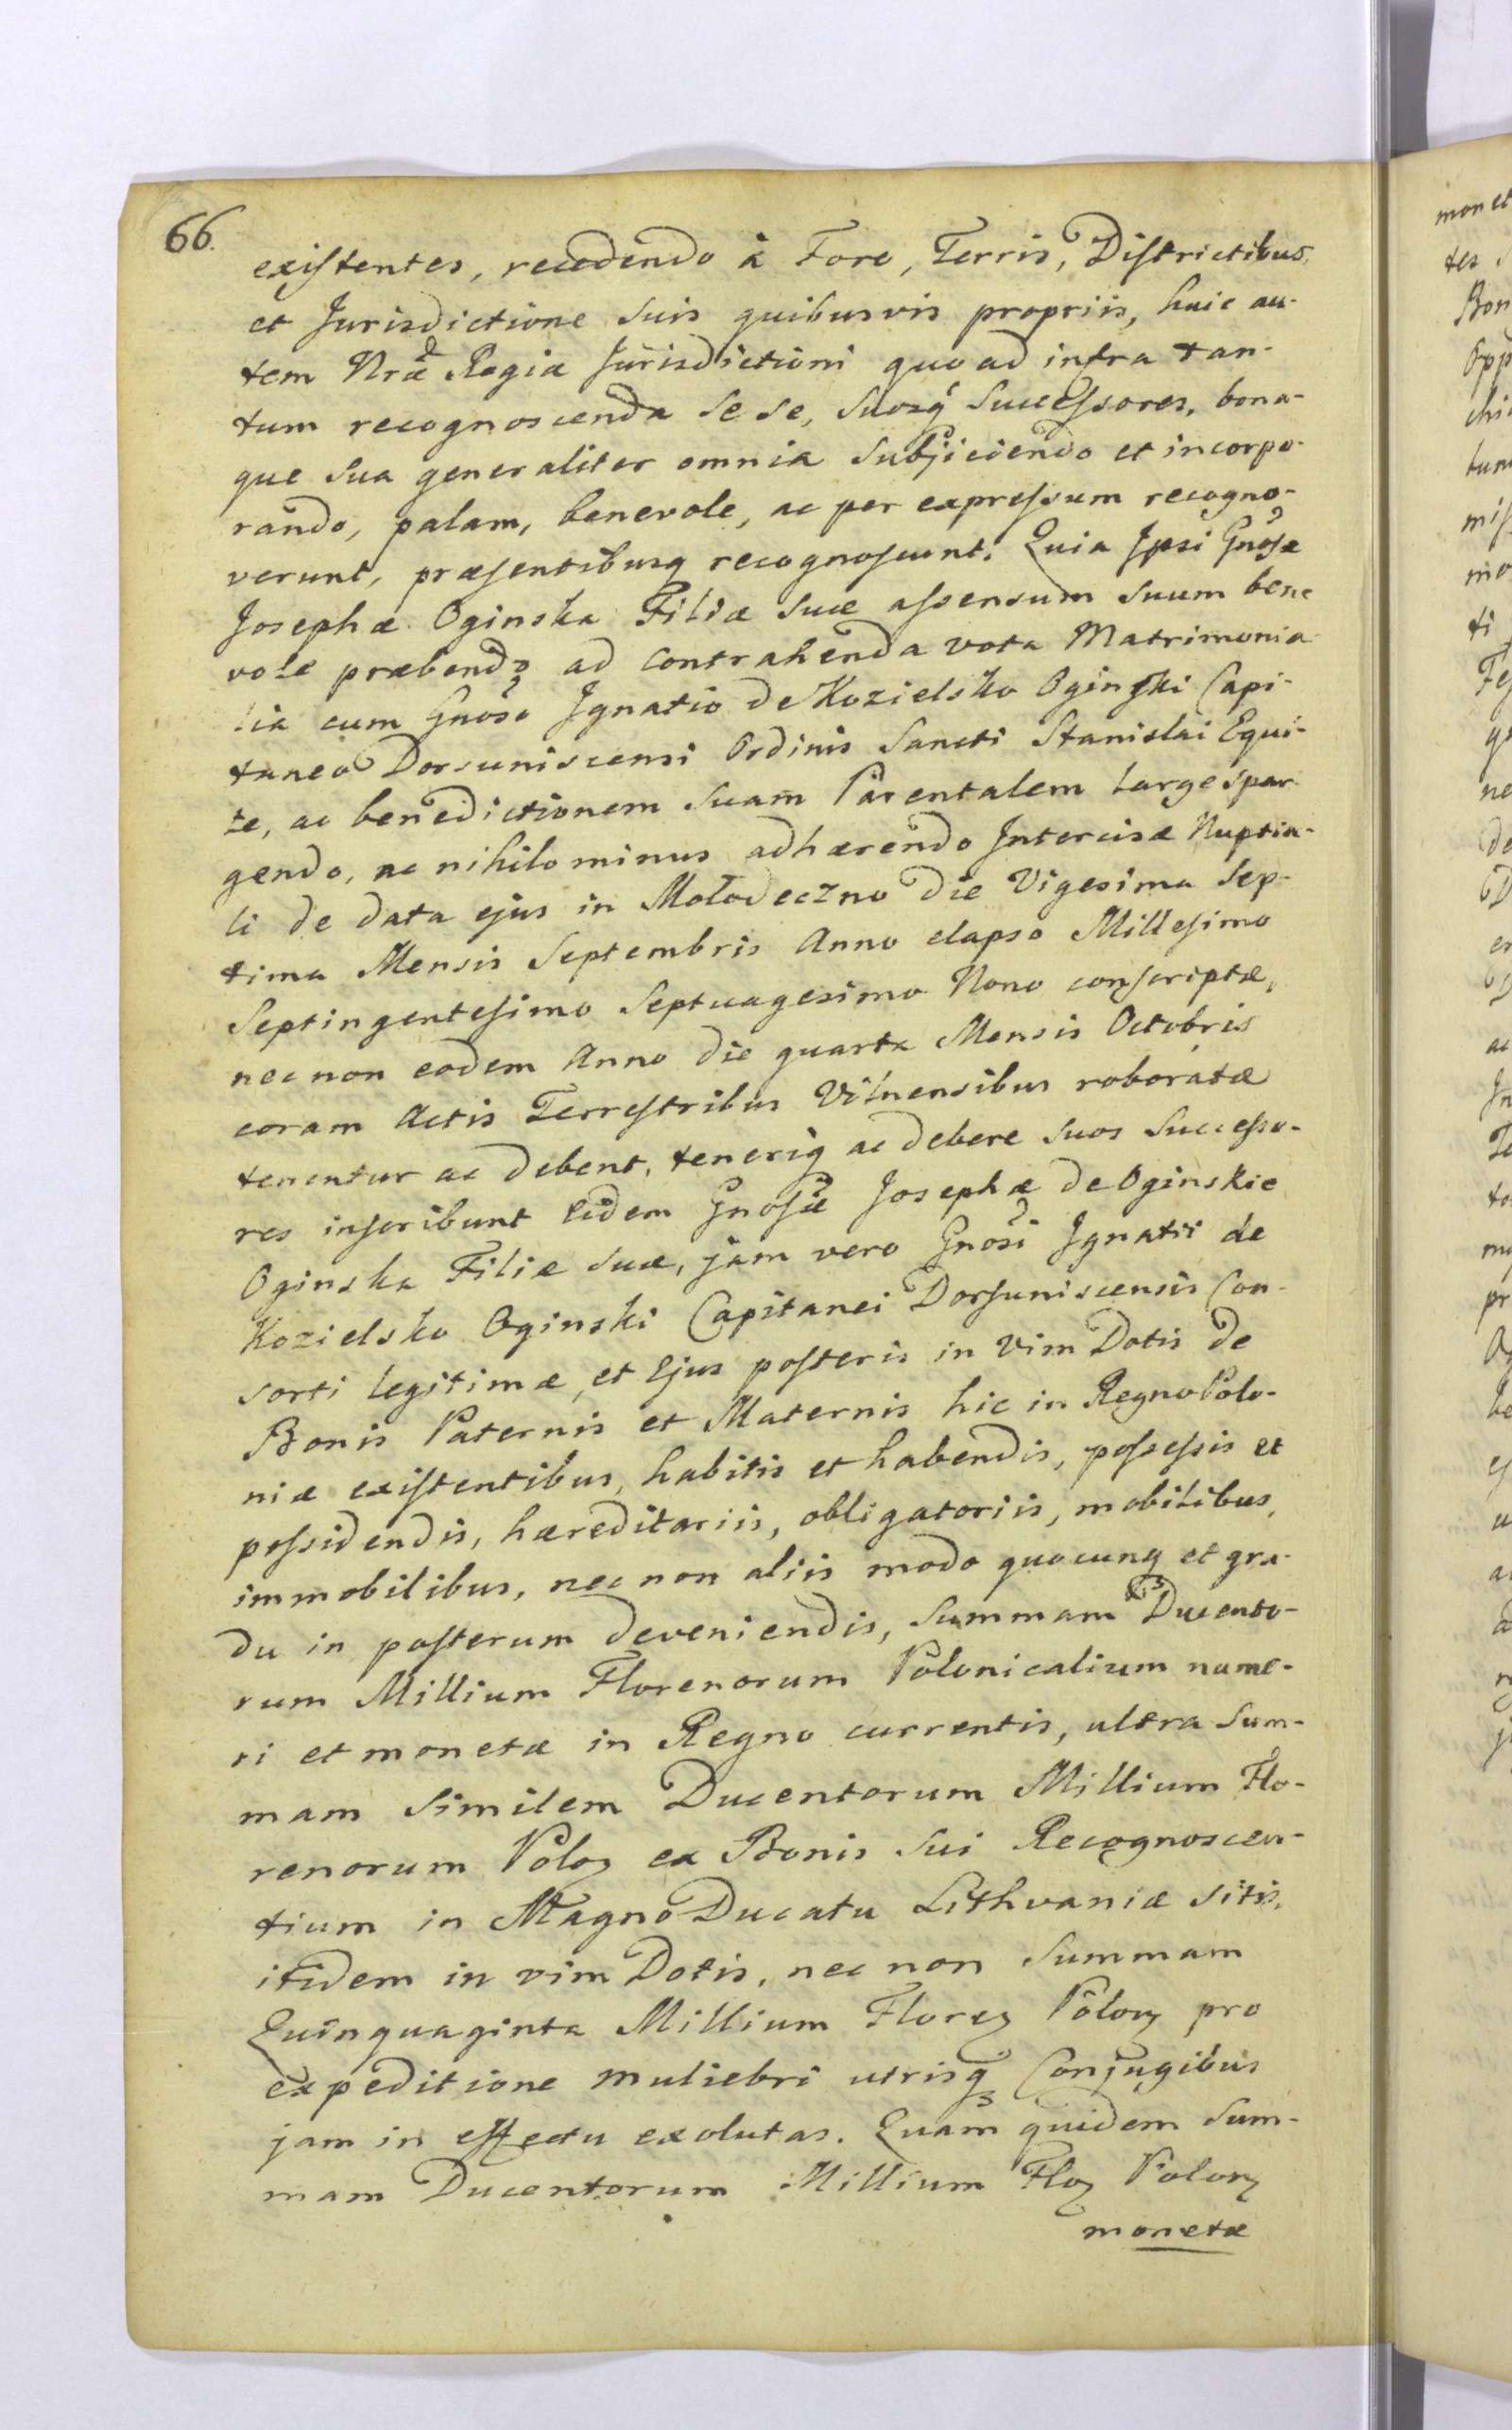 66.
existentes, recedendo à Foro, Terris, Districtibus,
et Jurisdictione suis quibusvis propriis, huic au-
tem Nræ Regiæ Jurisdictioni quo ad infra tan-
tum recognoscenda se se, suosq́ Successores, bona-
que sua generaliter omnia subjiciendo et incorpo-
rando, palam, benevole, ac per expressum recogno-
verunt, præsentibusq recognoscunt. Quia Ipsi Gnosæ
Josephæ Oginska Filiæ suæ assensum suum bene
vole præbendo ad contrahenda vota Matrimonia
lia cum Gnoso Ignatio de Kozielsko Oginski Capi-
taneo Dorsuniscensi Ordinis Sancti Stanislai Equi-
te, ac benedictionem suam Parentalem large spar-
gendo, ac nihilominus adhærendo Intercisæ Nuptia-
li de data ejus in Mołodeczno die Vigesima Sep-
tima Mensis Septembris Anno elapso Millesimo
Septingentesimo Septuagesimo Nono conscriptæ,
nec non eodem Anno die quarta Mensis Octobris
coram Actis Terrestribus Vilnensibus roboratæ
tenentur ac debent, teneriq ac debere suos Successo-
res inscribunt Eidem Gnosæ Josephæ de Oginskie
Oginska Filiæ suæ, jam vero Gnosi Ignatii de
Kozielsko Oginski Capitanei Dorsuniscensis Con-
sorti legitimæ, et Ejus posteris in vim Dotis de
Bonis Paternis et Maternis hic in Regno Polo-
niæ existentibus, habitis et habendis, possessis et
possidendis, hæreditariis, obligatoriis, mobilibus,
immobilibus, nec non aliis modo quocunq et gra-
du in posterum deveniendis, Summam Ducento-
rum Millium Florenorum Polonicalium nume-
ri et monetæ in Regno currentis, ultra Sum-
mam similem Ducentorum Millium Flo-
renorum Poloꝝ ex Bonis sui Recognoscen-
tium in Magno Ducatu Lithvaniæ sitis,
itidem in vim Dotis, nec non Summam
Quinquaginta Millium Floreꝝ Polonꝝ pro
expeditione muliebri utrisq Conjugibus
jam in effectu exolutas. Quam quidem Sum-
mam Ducentorum Millium Floꝝ Polonꝝ
monetæ